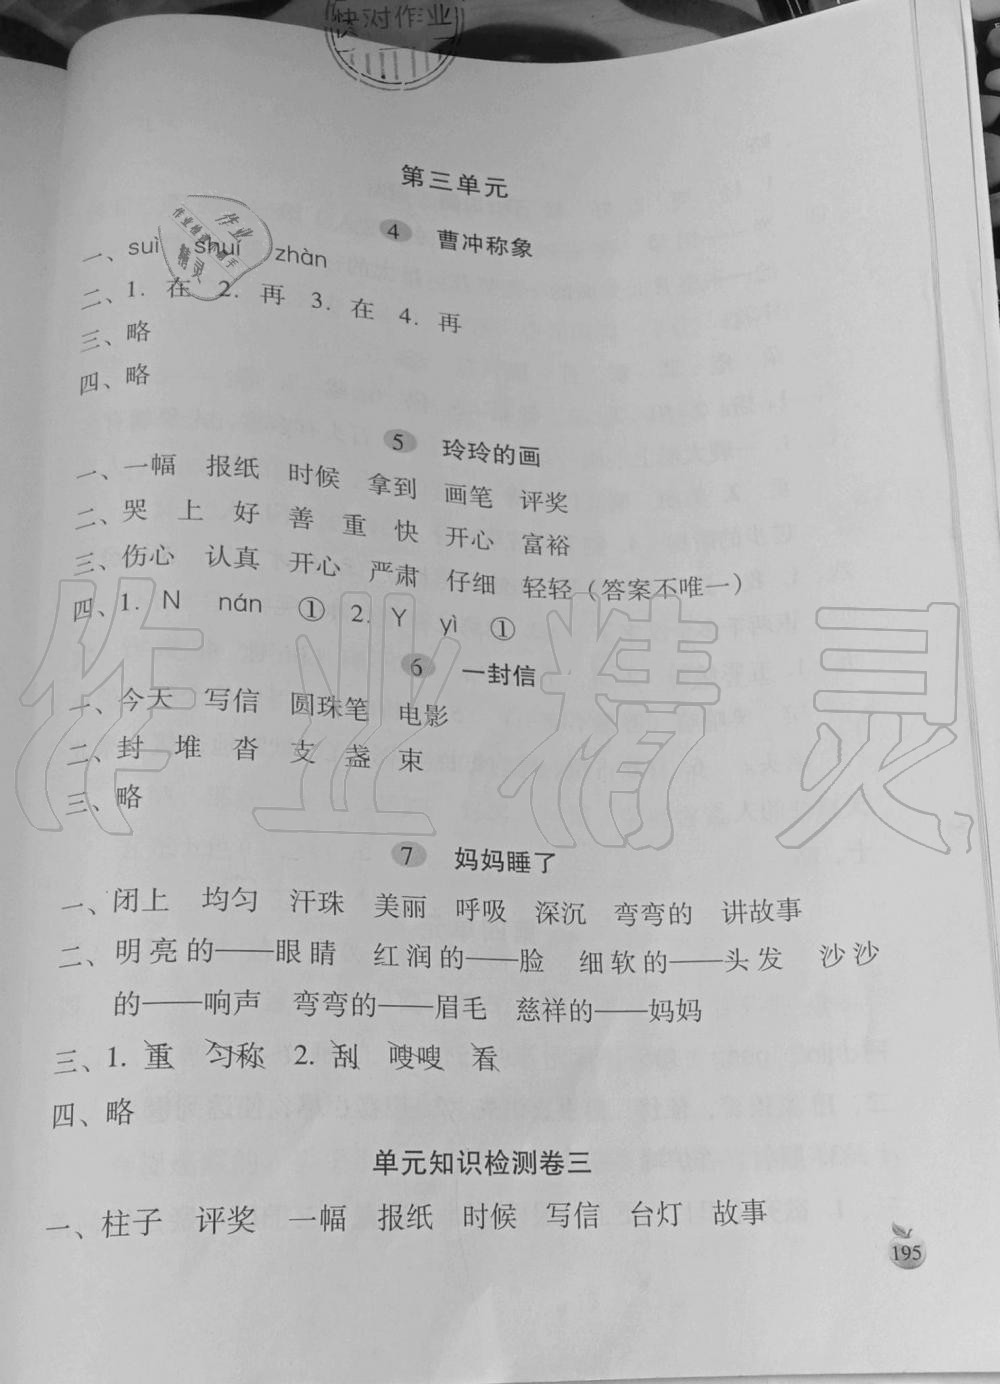 快对作业
第三单元
4 曹冲称象
一、suì shuí zhàn
二、1. 在 2. 再 3. 在 4. 再
三、略
四、略
5 玲玲的画
一、一幅 报纸 时候 拿到 画笔 评奖
二、哭 上 好 善 重 快 开心 富裕
三、伤心 认真 开心 严肃 仔细 轻轻（答案不唯一）
四、1. N nán ① 2. Y yì ①
6 一封信
一、今天 写信 圆珠笔 电影
二、封 堆 沓 支 盏 束
三、略
7 妈妈睡了
一、闭上 均匀 汗珠 美丽 呼吸 深沉 弯弯的 讲故事
二、明亮的——眼睛 红润的——脸 细软的——头发 沙沙
的——响声 弯弯的——眉毛 慈祥的——妈妈
三、1. 重 匀称 2. 刮 嗖嗖 看
四、略
单元知识检测卷三
一、柱子 评奖 一幅 报纸 时候 写信 台灯 故事
195
作业精灵